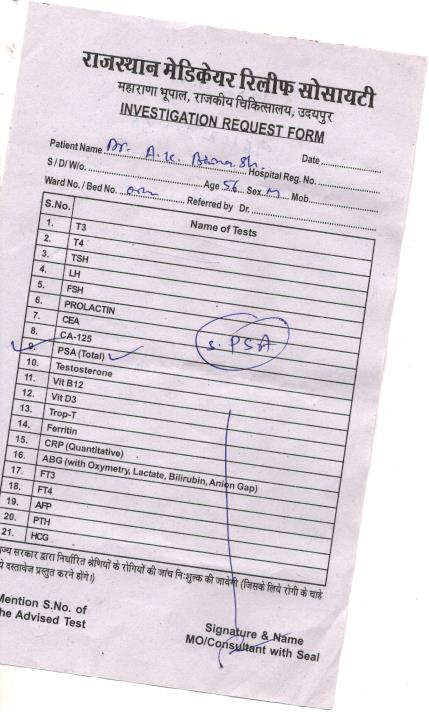 राजस्थान मेडिकेयर रिलीफ सोसायटी
महाराणा भूपाल, राजकीय चिकित्सालय, उदयपुर
INVESTIGATION REQUEST FORM
Date
Patient Name Dr. A.K.
Hospital Reg. No.
S / D/ W/o. Age 56 Sex M Mob.
Ward No. / Bed No. Referred by Dr.
S.No. Name of Tests
1. T3
2. T4
3. TSH
4. LH
5. FSH
6. PROLACTIN
7. CEA
8. CA-125
9. PSA (Total)
S. PSA
10. Testosterone
11. Vit B12
12. Vit D3
13. Trop-T
14. Ferritin
15. CRP (Quantitative)
16. ABG (with Oxymetry, Lactate, Bilirubin, Anion Gap)
17. FT3
18. FT4
19. AFP
20. PTH
21. HCG
सरकार द्वारा निर्धारित श्रेणियों के रोगियों की जांच निःशुल्क की जावेगी (जिसके लिये रोगी के चाहे
दस्तावेज प्रस्तुत करने होंगे।)
Mention S.No. of
the Advised Test
Signature & Name
MO/Consultant with Seal